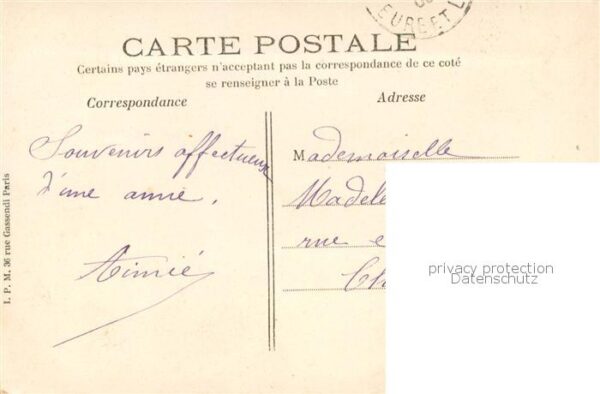 EURE ET L
CARTE POSTALE
Certains pays étrangers n'acceptant pas la correspondance de ce coté
se renseigner à la Poste
Correspondance
Adresse
Souvenirs affectueux
d'une amie.
Aimée
Mademoiselle
Madele
rue e
Ch
privacy protection
Datenschutz
I. P. M. 36 rue Gassendi Paris